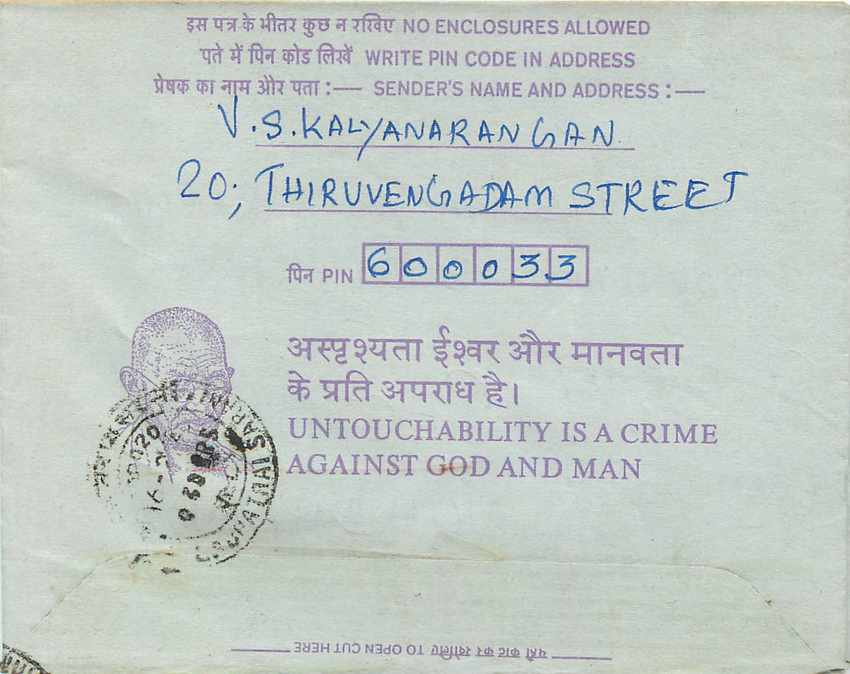 इस पत्र के भीतर कुछ न रखिए NO ENCLOSURES ALLOWED
पते में पिन कोड लिखें WRITE PIN CODE IN ADDRESS
प्रेषक का नाम और पता :— SENDER'S NAME AND ADDRESS :—
V.S.KALYANARANGAN.
20; THIRUVENGADAM STREET
पिन PIN 600033
अस्पृश्यता ईश्वर और मानवता
के प्रति अपराध है।
UNTOUCHABILITY IS A CRIME
AGAINST GOD AND MAN
यहाँ काट कर खोलिए TO OPEN CUT HERE